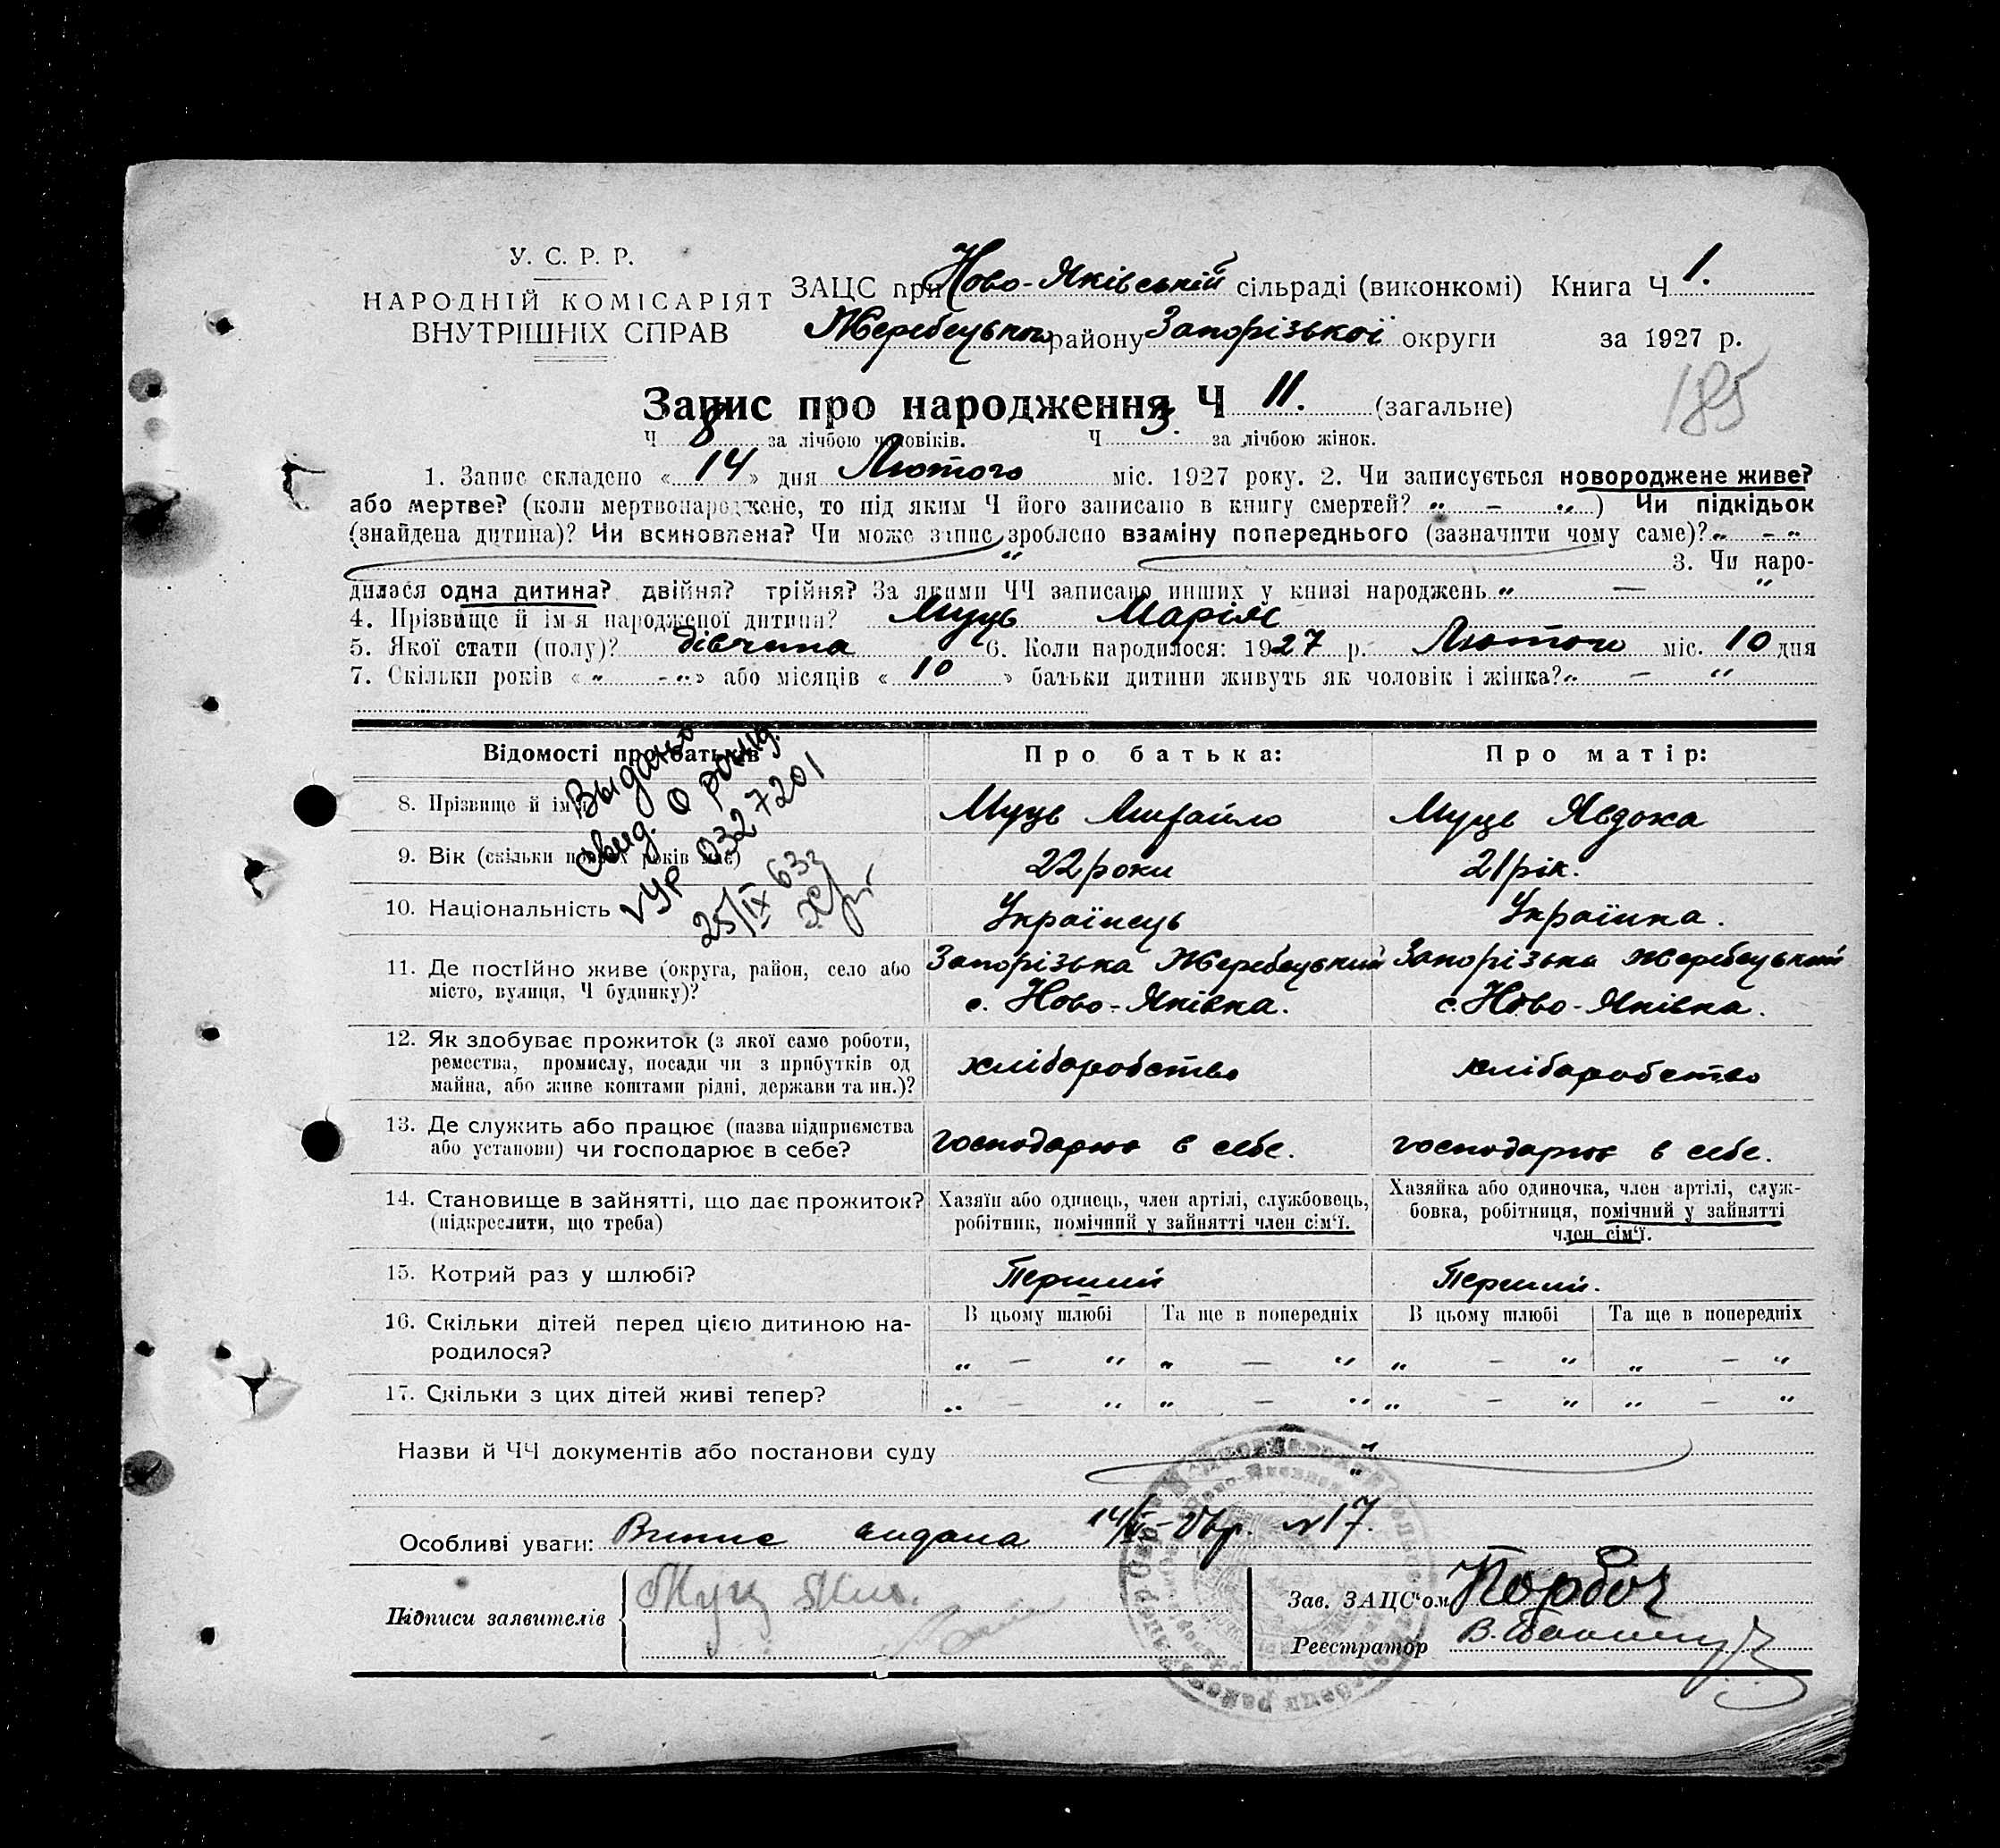 У. С. Р. Р.
НАРОДНІЙ КОМІСАРІЯТ
ВНУТРІШНІХ СПРАВ
ЗАЦС при Ново-Яківській сільраді (виконкомі) Книга Ч 1.
Жеребецького району Запорізької округи за 1927 р.
185
Запис про народження Ч 11. (загальне)
Ч 8 за лічбою чоловіків. Ч 3. за лічбою жінок.
1. Запис складено « 14 » дня Лютого міс. 1927 року. 2. Чи записується новороджене живе?
або мертве? (коли мертвонароджене, то під яким Ч його записано в книгу смертей? „ – “ ) Чи підкідьок
(знайдена дитина)? Чи всиновлена? Чи може запис зроблено взаміну попереднього (зазначити чому саме)? „ – “
„ 3. Чи наро-
дилася одна дитина? двійня? трійня? За якими ЧЧ записано инших у книзі народжень „ — “
4. Прізвище й ім'я народженої дитини? Муць Марія
5. Якої стати (полу)? дівчина 6. Коли народилося: 1927 р. Лютого міс. 10 дня
7. Скільки років « „ - “ » або місяців « 10 » батьки дитини живуть як чоловік і жінка? „ — “
Відомості про батьків Про батька: Про матір:
Выдано
свид. о рожд.
УР 0327201
25/IX 63г
8. Прізвище й ім'я Муць Михайло Муць Явдоха
9. Вік (скільки повних років має) 22 роки 21 рік.
10. Національність Українець Українка.
11. Де постійно живе (округа, район, село або місто, вулиця, Ч будинку)? Запорізька Жеребецький с. Ново-Яківка. Запорізька Жеребецький с. Ново-Яківка.
12. Як здобуває прожиток (з якої саме роботи,
ремества, промислу, посади чи з прибутків од
майна, або живе коштами рідні, держави та ин.)? хліборобство хліборобство
13. Де служить або працює (назва підприємства
або установи) чи господарює в себе? господарює в себе. господарює в себе.
14. Становище в зайнятті, що дає прожиток?
(підкреслити, що треба)
Хазяїн або одинець, член артілі, службовець,
робітник, помічний у зайнятті член сім'ї.
Хазяйка або одиночка, член артілі, служ-
бовка, робітниця, помічний у зайнятті
член сім'ї.
15. Котрий раз у шлюбі? Перший Перший.
16. Скільки дітей перед цією дитиною на-
родилося?
В цьому шлюбі Та ще в попередніх В цьому шлюбі Та ще в попередніх
„ — “ „ — “ „ — “ „ — “
17. Скільки з цих дітей живі тепер? „ — “ „ — “ „ — “ „ — “
Назви й ЧЧ документів або постанови суду „
Особливі уваги: Випис видана № 17.
Підписи заявителів Муц Мих.
Зав. ЗАЦС'ом
Реєстратор В.